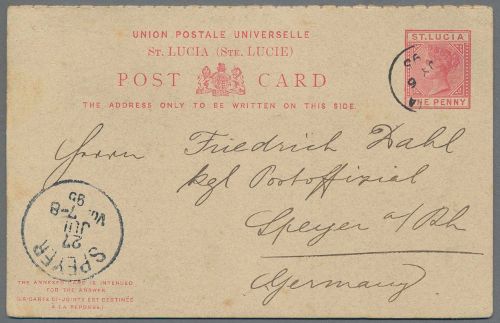 UNION POSTALE UNIVERSELLE
ST. LUCIA (STE. LUCIE)
POST CARD
THE ADDRESS ONLY TO BE WRITTEN ON THIS SIDE.
ST. LUCIA
ONE PENNY
A
6
JY
95
Herrn Friedrich Dahl
kgl Postoffizial
Speyer a/Rh
Germany
SPEYER
27
JUL
Vm. 7-8
95
THE ANNEXED CARD IS INTENDED
FOR THE ANSWER
(LA CARTE CI-JOINTE EST DESTINÉE
À LA RÉPONSE)